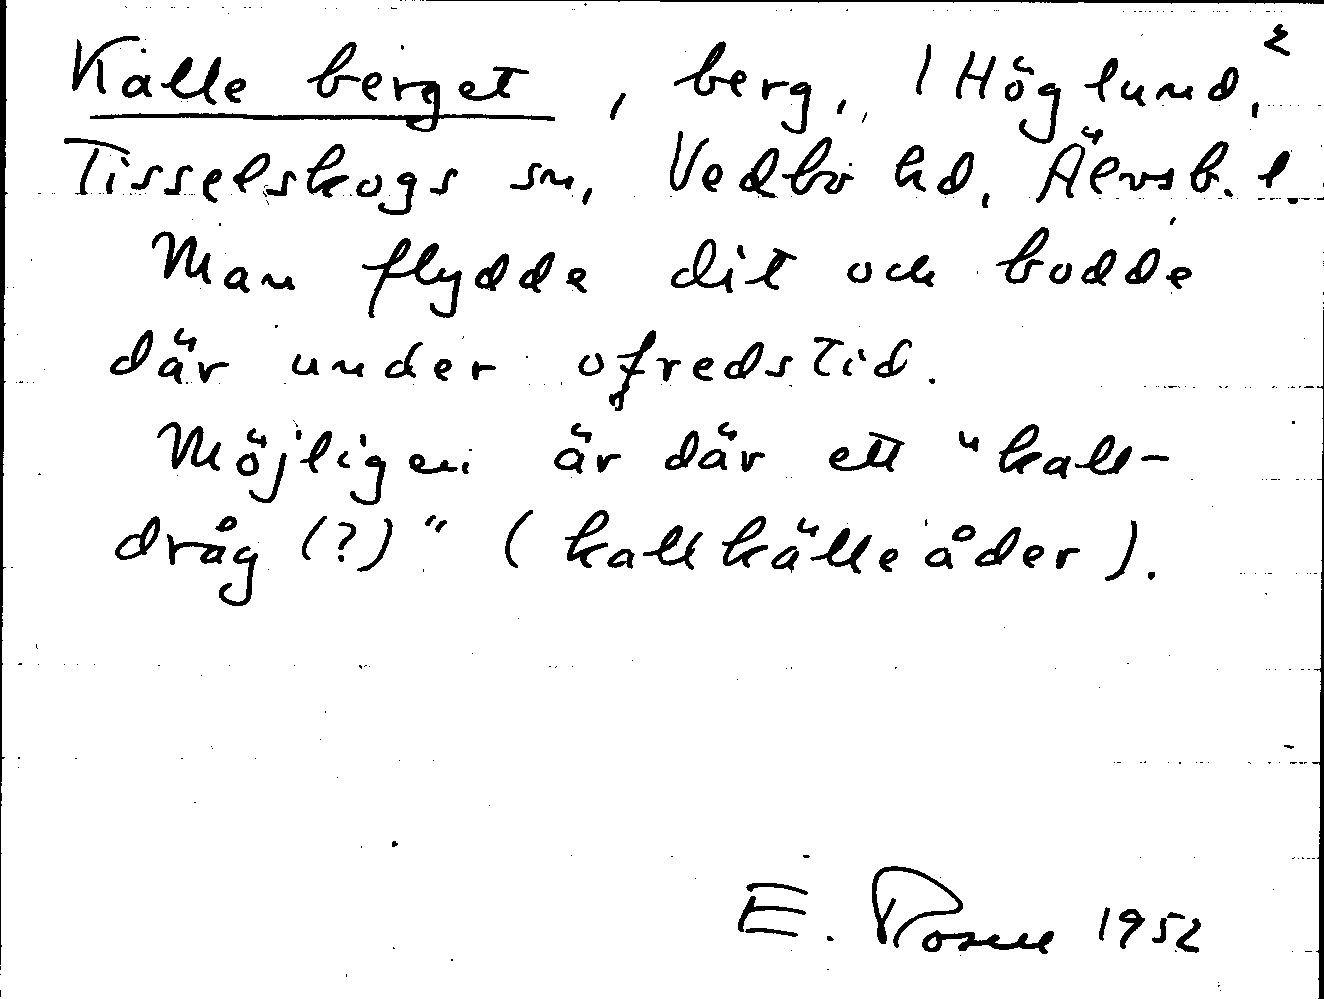 Kalle berget, berg, 1 Höglund, 2
Tisselskogs sn, Vedbo hd, Älvsb. l.
Man flydde dit och bodde
där under ofredstid.
Möjligen är där ett "kall-
dråg (?)" (kallkälleåder).
E. Rosell 1952